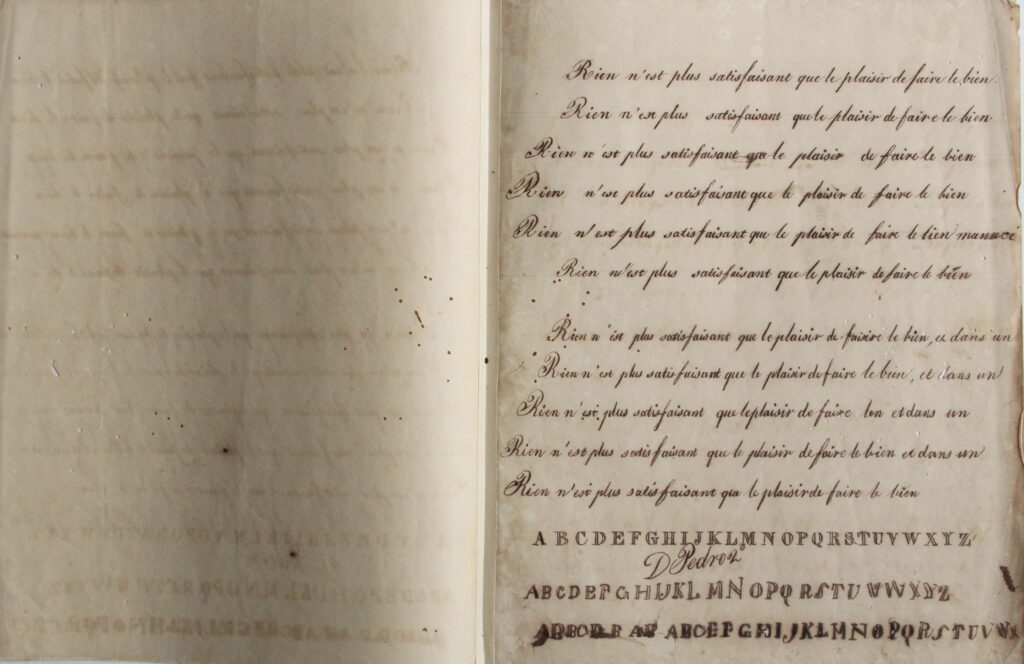 Rien n'est plus satisfaisant que le plaisir de faire le bien.
Rien n'est plus satisfaisant que le plaisir de faire le bien
Rien n'est plus satisfaisant que le plaisir de faire le bien
Rien n'est plus satisfaisant que le plaisir de faire le bien
Rien n'est plus satisfaisant que le plaisir de faire le bien
Rien n'est plus satisfaisant que le plaisir de faire le bien
Rien n'est plus satisfaisant que le plaisir de faisire le bien, et dans un
Rien n'est plus satisfaisant que le plaisir de faire le bien, et dans un
Rien n'est plus satisfaisant que le plaisir de faire et dans un
Rien n'est plus satisfaisant que le plaisir de faire le bien et dans un
Rien n'est plus satisfaisant que le plaisir de faire le bien
A B C D E F G H I J K L M N O P Q R S T U V W X Y Z
D Pedro 2º
A B C D E F G H I J K L M N O P Q R S T U V W X Y Z
A B C E F G H I J K L M N O P Q R S T U V W X